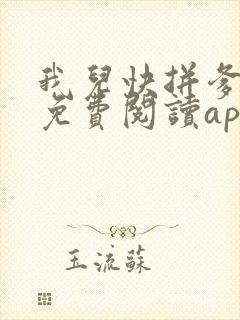 我兒快拼爹
免費閱讀ap
玉流蘇